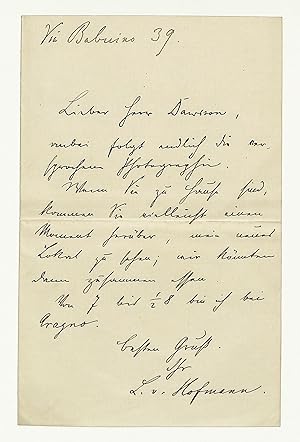 Via Babuino 39.
Lieber Herr Dawison,
anbei folgt endlich die ver-
sprochene Photographie.
Wenn Sie zu Hause sind,
kommen Sie vielleicht einen
Moment herüber, mein neues
Lokal zu sehen; wir könnten
dann zusammen essen.
Von 7 bis ½8 bin ich bei
Aragno.
besten Gruß.
Ihr
L. v. Hofmann.